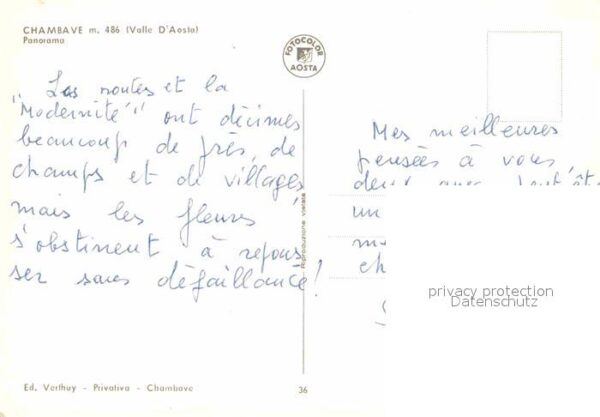 CHAMBAVE m. 486 (Valle D'Aosta)
Panorama
FOTOCOLOR
AOSTA
Les routes et la
"Modernité" ont décimés
beaucoup de près, de
champs et de villages
mais les fleurs
s'obstinent à repous
ser sans défaillance!
Mes meilleures
pensées à vous
un
ch
Riproduzione vietata
privacy protection
Datenschutz
Ed. Verthuy - Privativa - Chambave
36